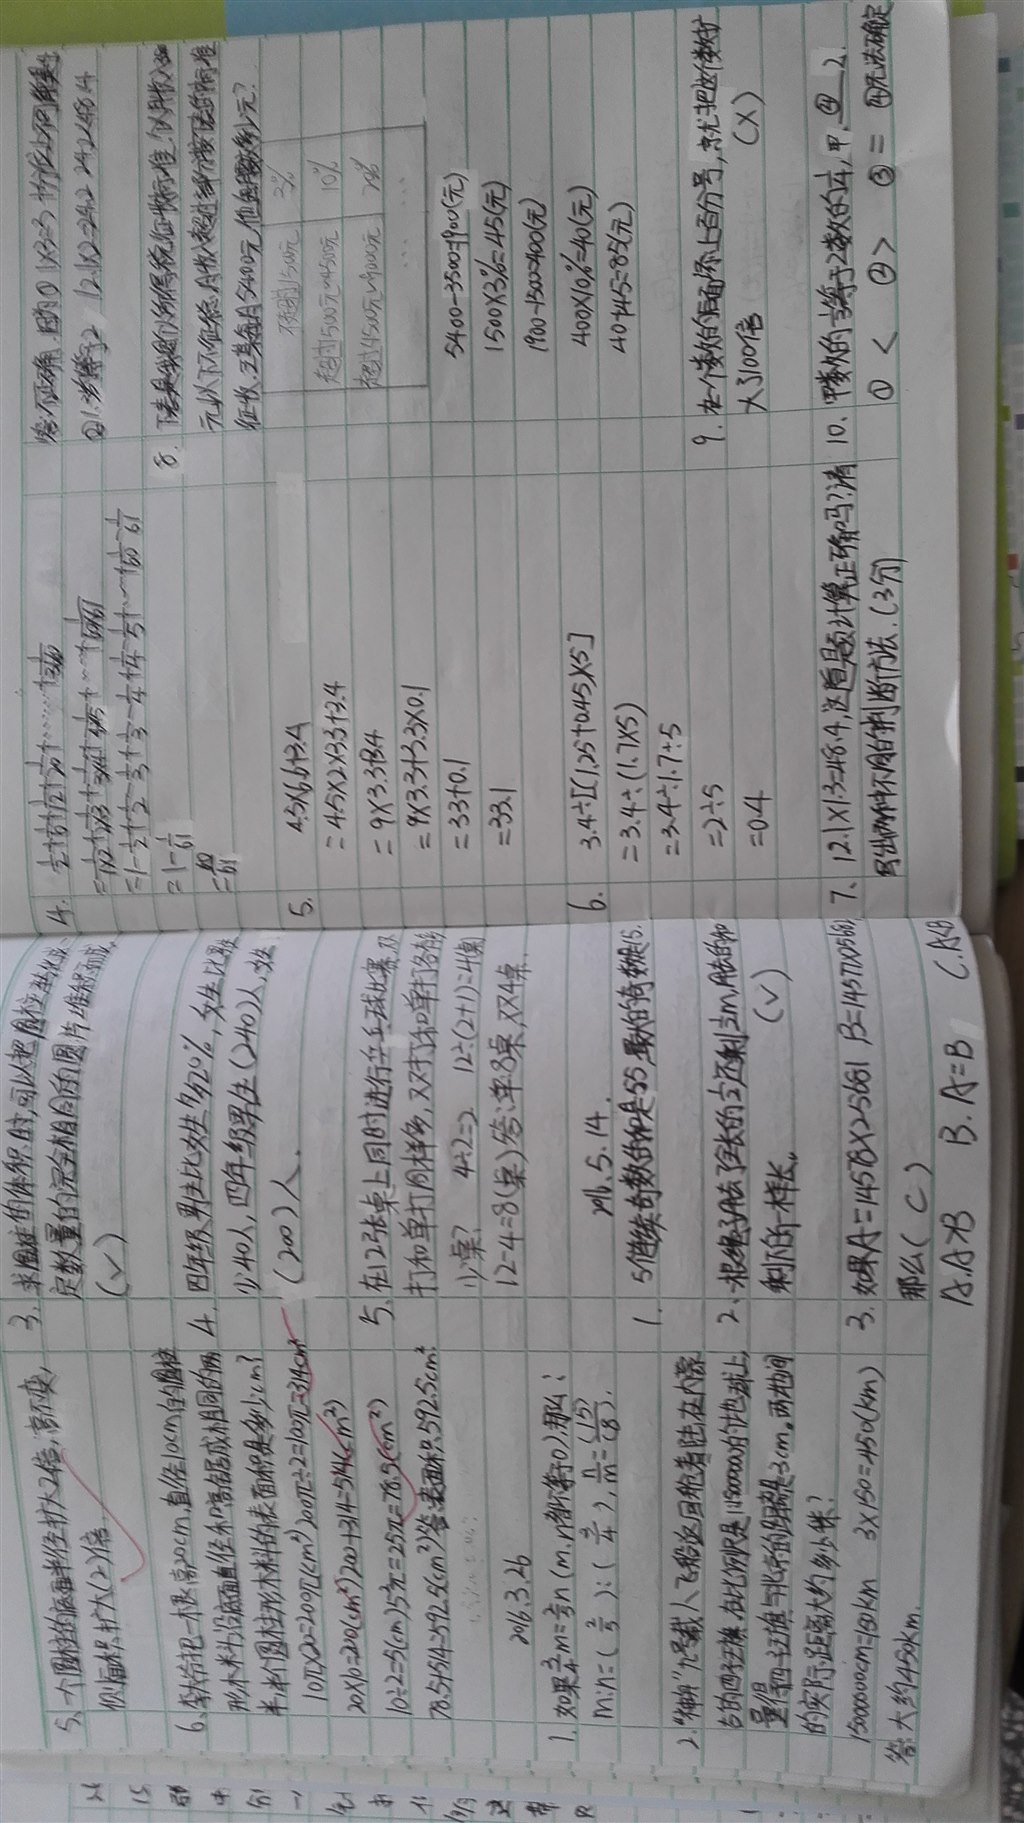 5、一个圆柱的底面半径扩大2倍，高不变，
侧面积扩大(2)倍.
6、李大爷把一根高20cm,直径10cm的圆柱
形木料沿底面直径和高锯成相同的两
半,半个圆柱形木料的表面积是多少cm²?
10π×20=200π(cm²) 200π÷2=100π=314cm²
20×10=200(cm²) 200+314=514(cm²)
10÷2=5(cm) 5²π=25π=78.5(cm²)
78.5+514=592.5(cm²) 答:表面积592.5cm²
2016.3.26
1. 如果3/4m=2/3n(m.n都不等于0),那么:
m:n=(2/3):(3/4), n/m=(15)/(8).
2."神舟"九号载人飞船返回舱着陆在内蒙
古的四子王旗.在比例尺是1:15000000的地图上,
量得四子王旗与北京的距离是3cm。两地间
的实际距离大约多少千米?
15000000cm=150km 3×150=450(km)
答:大约450km.
3、求圆柱的体积时,可以把圆柱转化成、
定数量的完全相同的圆片堆积而成,
(√)
4. 四年级男生比女生多20%,女生比男生
少40人,四年级男生(240)人,女生
(200)人.
5、在12张桌上同时进行乒乓球比赛,双
打和单打同样多,双打和单打各几
张桌? 4÷2=2 12÷(2+1)=4(桌)
12-4=8(桌)答:单8桌,双4桌.
2016.5.14.
1. 5个连续奇数的和是55,最大的奇数是15.
2、一根绳子用去了全长的1/2还剩1/2m,用去的和
剩下的一样长。(√)
3. 如果A=14578×25661 B=14577×25662
那么(C)
A.A>B B.A=B C.A<B
4. 1/2+1/6+1/12+1/20+......+1/3660
=1/1×2+1/2×3+1/3×4+1/4×5+...+1/60×61
=1-1/2+1/2-1/3+1/3-1/4+1/4-1/5+...+1/60-1/61
=1-1/61
=60/61
5. 4.5×6.6+3.4
=4.5×2×3.3+3.4
=9×3.3+3.4
=9×3.3+3.3+0.1
=33+0.1
=33.1
6. 3.4÷[(1.25+0.45)×5]
=3.4÷(1.7×5)
=3.4÷1.7÷5
=2÷5
=0.4
7、12.1×1.3=48.4,这道题计算正确吗?请
写出两种不同的判断方法.(3分)
答:不正确.
8.
元以下不征税.月收入超过部分按下面的标准
征收.王某每月5400元,他应缴税多少元?
不超过1500元 3%
超过1500元~4500元 10%
超过4500元~9000元
5400-3500=1900(元)
1500×3%=45(元)
1900-1500=400(元)
400×10%=40(元)
40+45=85(元)
9. 在一个数的后面添上百分号,就把这个数扩
大了100倍 (×)
10. 甲数的1/3等于乙数的1/4,甲 ④ 乙
① < ② > ③ = ④无法确定